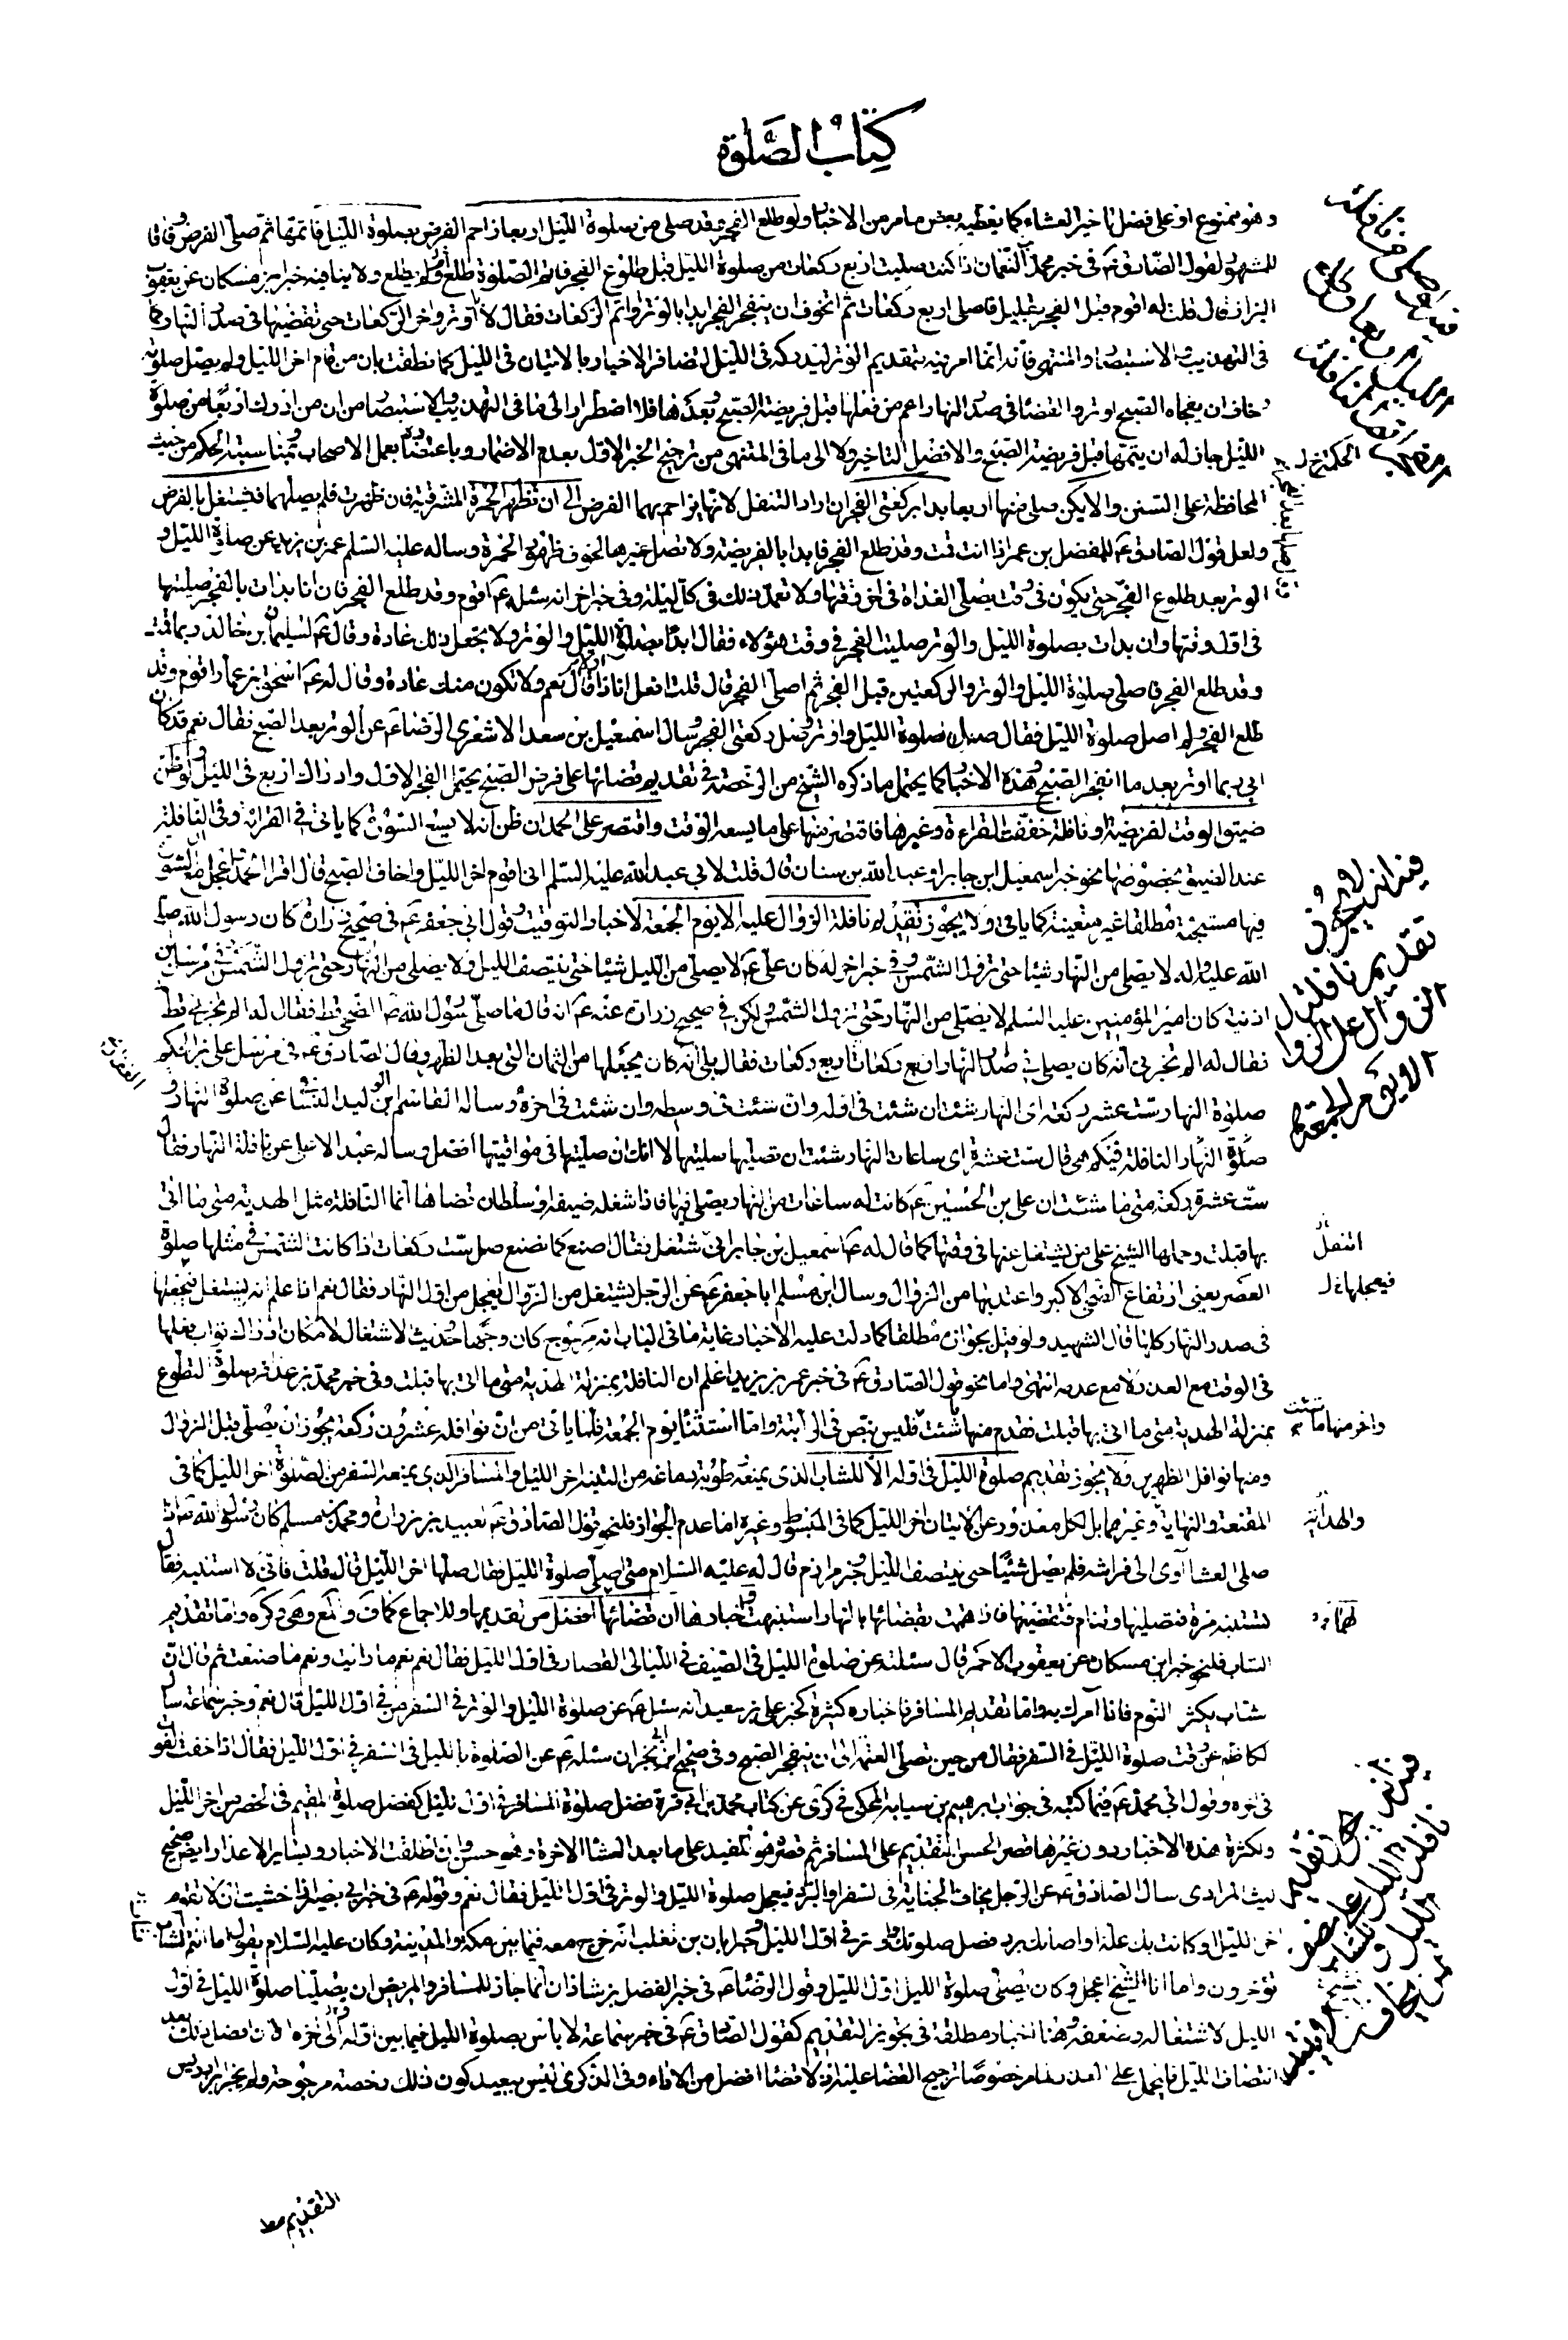 كتاب الصلوة
وهو ممنوع او على فضل تاخير العشاء كما يعطيه بعض ما مر من الاخبار ولو طلع الفجر وقد صلى من صلوة الليل اربعا زاحم الفرض بصلوة الليل فاتمها ثم صلى الفرض وفاقا
للمشهور لقول الصادق ع في خبر محمد بن النعمان اذا كنت صليت اربع ركعات من صلوة الليل قبل طلوع الفجر فاتم الصلوة طلع ام لم يطلع ولا ينافيه خبر ابن مسكان عن يعقوب
البزاز قال قلت له اقوم قبل الفجر بقليل فاصلى اربع ركعات ثم اتخوف ان ينفجر الفجر ابدا بالوتر او اتم الركعات فقال لا بل اوتر واخر الركعات حتى تقضيها في صدر النهار كما
في التهذيب والاستبصار والمنتهى فانه انما امر فيه بتقديم الوتر ليدركه في الليل لتضافر الاخبار بالاتيان في الليل كما نطقت بان من قام اخر الليل ولم يصل صلوته
وخاف ان يفجاه الصبح اوتر والقضاء في صدر النهار اعم من فعلها قبل فريضة الصبح وبعدها فلا اضطرار الى ما في التهذيب والاستبصار من ان من ادرك اربعا من صلوة
الليل جاز له ان يتمها قبل فريضة الصبح والافضل التاخير ولا الى ما في المنتهى من ترجيح الخبر الاول بعدم الاضمار وباعتضاده بعمل الاصحاب وبمناسبته الحكم من حيث
المحافظة على السنن والا يكن صلى منها اربعا بدا بركعتي الفجر ان اراد التنفل لانها يزاحم بهما الفرض الى ان تظهر الحمرة المشرقية فان ظهرت فلم يصلهما فيشتغل بالفرض
ولعل قول الصادق ع للمفضل بن عمر اذا انت قمت وقد طلع الفجر فابدا بالفريضة ولا تصل غيرها لخوف ظهور الحمرة وساله عليه السلم عمر بن يزيد عن صلوة الليل و
الوتر بعد طلوع الفجر حتى يكون في وقت يصلى الغداة في اخر وقتها ولا تعمد ذلك في كل ليلة وفي خبر اخر انه سئله ع اقوم وقد طلع الفجر فان انا بدات بالفجر صليتها
في اول وقتها وان بدات بصلوة الليل والوتر صليت الفجر في وقت هؤلاء فقال ابدا بصلوة الليل والوتر ولا تجعل ذلك عادة وقال ع لسليمان بن خالد ربما قمت
وقد طلع الفجر فاصلى صلوة الليل والوتر والركعتين قبل الفجر ثم اصلى الفجر قال قلت افعل انا ذا قال نعم ولا تكون منك عادة وقال له ع اسحق بن عمار اقوم وقد
طلع الفجر ولم اصل صلوة الليل فقال صل صلوة الليل واوتر وصل ركعتي الفجر وسال اسمعيل بن سعد الاشعري الرضا ع عن الوتر بعد الصبح فقال نعم قد كان
ابي ربما اوتر بعد ما انفجر الصبح وهذه الاخبار كما يحتمل ما ذكره الشيخ من الرخصة في تقديم قضائها على فرض الصبح يحتمل الفجر الاول وادراك اربع في الليل ولو ظن
ضيق الوقت لفريضة او نافلة خففت القراءة وغيرها فاقتصر منها على ما يسعه الوقت واقتصر على الحمد ان ظن انه لا يسع السورة كما ياتي في القراءة وفي النافلة
عند الضيق بخصوصها نحو خبر اسمعيل ابن جابر او عبد الله بن سنان قال قلت لابي عبد الله عليه السلم اني اقوم اخر الليل واخاف الصبح قال اقرا الحمد واعجل
فيها مستحبة مطلقا غير متعينة كما ياتي ولا يجوز تقديم نافلة الزوال عليه الا يوم الجمعة لاخبار التوقيت وقول ابي جعفر ع في صحيح زرارة كان رسول الله صلى
الله عليه واله لا يصلى من النهار شيئا حتى تزول الشمس وفي خبر اخر له كان علي ع لا يصلى من الليل شيئا حتى ينتصف الليل ولا يصلى من النهار حتى تزول الشمس وفي مرسل ابن
اذينة كان امير المؤمنين عليه السلم لا يصلى من النهار حتى تزول الشمس ولكن في صحيح زرارة عنه ع انه قال ما صلى رسول الله ص الضحى قط فقال له الم تخبرني
فقال له الم تخبرني انه كان يصلى في صدر النهار اربع ركعات فقال بلى انه كان يجعلها من الثمان التي بعد الظهر وقال الصادق ع في مرسل علي بن الحكم
صلوة النهار ست عشر ركعة اى النهار شئت ان شئت في اوله وان شئت في وسطه وان شئت في اخره وساله القاسم ابن الوليد الغساني عن صلوة النهار
صلوة النهار النافلة في كم هي قال ست عشرة اى ساعات النهار شئت ان تصليها صليتها الا انك ان صليتها في مواقيتها افضل وساله عبد الاعلى عن نافلة النهار فقال
ست عشرة ركعة متى ما شئت ان علي بن الحسين ع كانت له ساعات من النهار يصلى فيها فاذا شغله ضيعة او سلطان قضاها انما النافلة مثل الهدية متى ما اتى
بها قبلت وحملها الشيخ على من يشتغل عنها في وقتها كما قال له ع اسمعيل بن جابر اني اشتغل فقال اصنع كما نصنع صل ست ركعات اذا كانت الشمس في مثلها صلوة
العصر يعنى ارتفاع الضحى الاكبر واعتد بها من الزوال وسال ابن مسلم ابا جعفر ع عن الرجل يشتغل من الزوال يعجل من اول النهار فقال نعم اذا علم انه يشتغل فيجعلها
في صدر النهار كلها قال الشهيد ولو قيل بجوازه مطلقا كما دلت عليه الاخبار غاية ما في الباب انه مرجوح كان وجها
في الوقت مع العدول لا مع عدمه انتهى واما نحو قول الصادق ع في خبر عمر بن يزيد اعلم ان النافلة بمنزلة الهدية متى ما اتى بها قبلت وفي خبر محمد بن عذافر صلوة التطوع
بمنزلة الهدية متى ما اتى بها قبلت فقدم منها ما شئت فليس بنص في الراتبة واما استثناء يوم الجمعة فلما ياتي من ان نوافله عشرون ركعة يجوز ان يصلى قبل الزوال
ومنها نوافل الظهرين ولا يجوز تقديم صلوة الليل في اوله الا للشاب الذى يمنعه رطوبة دماغه من التنبه اخر الليل والمسافر الذى يمنعه السفر من الصلوة اخر الليل كما في
المقنعة والنهاية وغيرهما بل لكل معذور عن الاتيان اخر الليل كما في المبسوط وغيره اما عدم الجواز فلنحو قول الصادق ع لعبيد بن زرارة ومحمد بن مسلم كان رسول الله ص اذا
صلى العشاء آوى الى فراشه فلم يصل شيئا حتى ينتصف الليل وخبر مرازم قال له عليه السلام متى اصلى صلوة الليل فقال صلها اخر الليل قال قلت فاني لا استنبه فقال
تستنبه مرة فتصليها وتنام فتقضيها فاذا هممت بقضائها بالنهار استنبهت واخبارها ان قضائها افضل من تقديمها وللاجماع كما في
الشاب فلنحو خبر ابن مسكان عن يعقوب الاحمر قال سئلته عن صلوة الليل في الصيف في الليالي القصار في اول الليل فقال نعم نعم ما رايت ونعم ما صنعت ثم قال ان
شاب يكثر النوم فانا آمرك به واما تقديم المسافر فاخباره كثيرة كخبر علي بن سعيد انه سئله ع عن صلوة الليل والوتر في السفر من في اول الليل قال نعم وخبر سماعة سال
الكاظم ع عن وقت صلوة الليل في السفر فقال من حين تصلى العتمة الى ان ينفجر الصبح وفي صحيح ابن ابي نجران سئله ع عن الصلوة بالليل في السفر في اول الليل فقال اذا خفت الفوت
في اخره وقول ابي محمد ع فيما كتبه في جواب ابرهيم بن سيابة المحكي في كرى عن كتاب محمد بن ابي قرة فضل صلوة المسافر في اول الليل كفضل صلوة المقيم في الحضر من اخر الليل
ولكثرة هذه الاخبار دون غيرها قصر الحسن التقديم على المسافر ثم قصره هو والمفيد على ما بعد العشاء الاخرة وهو حسن وان اطلقت الاخبار
ليث المرادى سال الصادق ع عن الرجل يخاف الجنابة في السفر او البرد فيعجل صلوة الليل والوتر في اول الليل فقال نعم وقوله ع في خبر ابي بصير اذا خشيت ان لا تقوم
اخر الليل او كانت بك علة او اصابك برد فصل صلوتك واوتر في اول الليل وخبر ابان بن تغلب انه خرج معه فيما بين مكة والمدينة وكان عليه السلام يقول اما انتم فشباب
تؤخرون واما انا فشيخ اعجل وكان يصلى صلوة الليل اول الليل وقول الرضا ع في خبر الفضل بن شاذان انما جاز للمسافر والمريض ان يصليا صلوة الليل في اول
الليل لاشتغاله وضعفه وهنا اخبار مطلقة في تجويز التقديم كقول الصادق ع في خبر سماعة لا باس بصلوة الليل فيما بين اوله الى اخره الا ان افضل ذلك بعد
انتصاف الليل فليحمل على العذر خصوصا ترجيح القضاء عليه اذ لا قضاء افضل من الاداء وفي الذكرى ليس ببعيد كون ذلك رخصة مرجوحة ولم يجز ابن ادريس
فيه انه لا يجوز
تقديم نافلة ال
الزوال على الزوال
الا يوم الجمعة
اتنفل
فيعجلها
واخر منها ما شئت
والهداية
التقديم مط